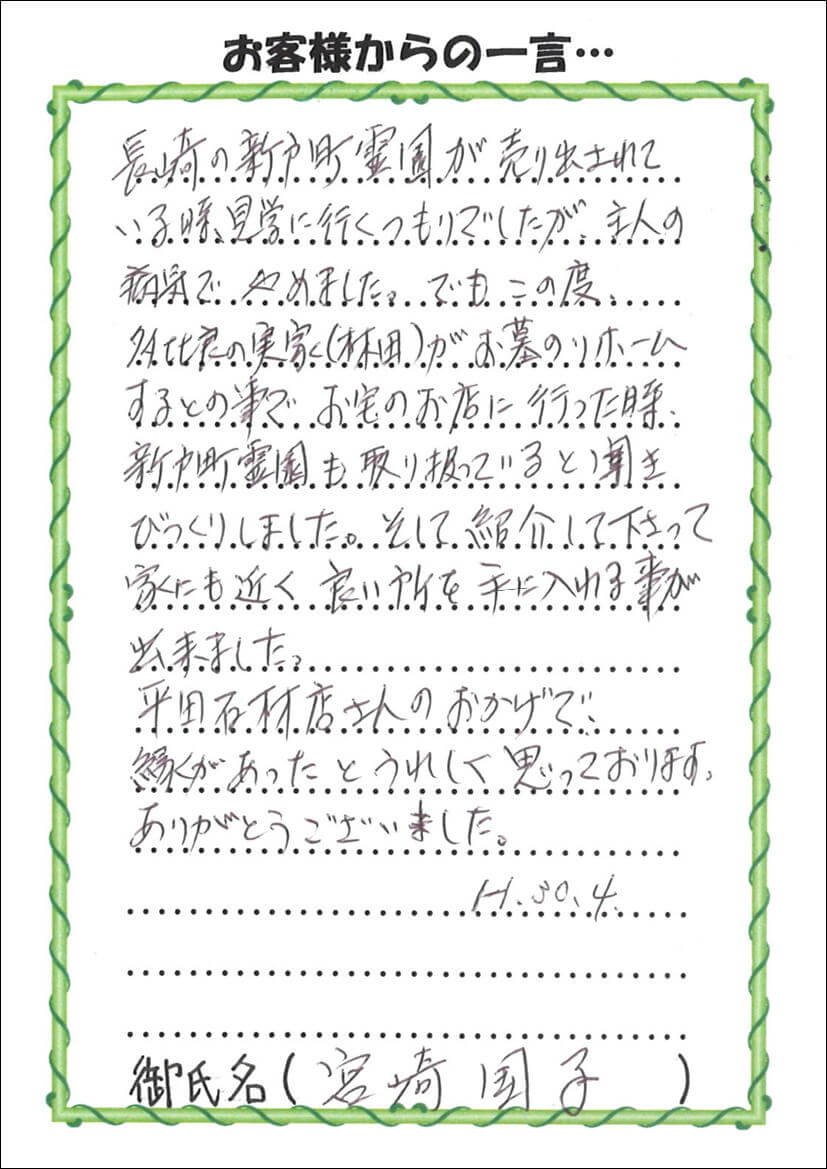 お客様からの一言…
長崎の新戸町霊園が売り出されて
いる時、見学に行くつもりでしたが、主人の
病気でやめました。でもこの度、
多比良の実家(林田)がお墓のリホーム
するとの事で お宅のお店に行った時、
新戸町霊園も取り扱っていると聞き
びっくりしました。そして紹介して下さって
家にも近く 良い所を手に入れる事が
出来ました。
平田石材店さんのおかげで、
縁があったとうれしく思っております。
ありがとうございました。
H.30.4.
御氏名(宮崎国子)